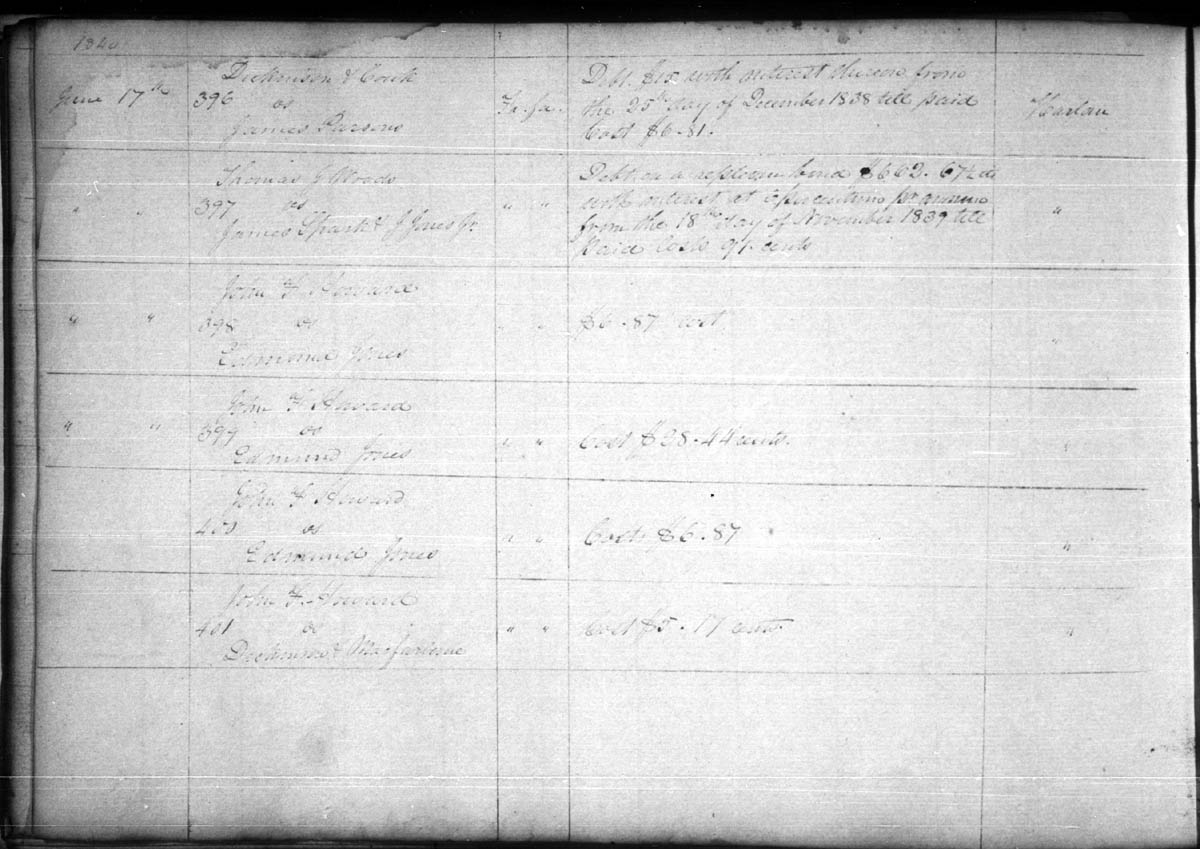 1840
Dickinson & Cook
June 17th 396 vs Fi. fa.
James Parsons
Debt. $ with interest thereon from
the 25th day of December 1838 till paid
Cost $6.81.
Harlan
Thomas J Woods
" " 397 vs " "
James & J Jones Jr.
Debt on a replevin bond $662. 67½ cts
with interest at per annum
from the 18th day of November 1839 till
paid Costs cents
"
John F. Howard
" " 398 vs " " $6.87 cost "
Edmund Jones
John F. Howard
" " 399 vs " " Cost $28.44 cents.
Edmund Jones
John F. Howard
400 vs " " Cost $6.87 "
Edmund Jones
John F. Howard
401 vs " " Cost $5.17 cents. "
Dickinson & Macfarlane